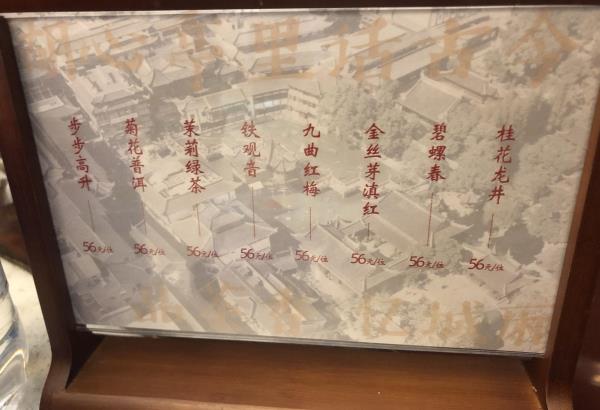 湖心亭里话古今
桂花龙井 56元/位
碧螺春 56元/位
金丝芽滇红 56元/位
九曲红梅 56元/位
铁观音 56元/位
茉莉绿茶 56元/位
菊花普洱 56元/位
步步高升 56元/位
忆城厢